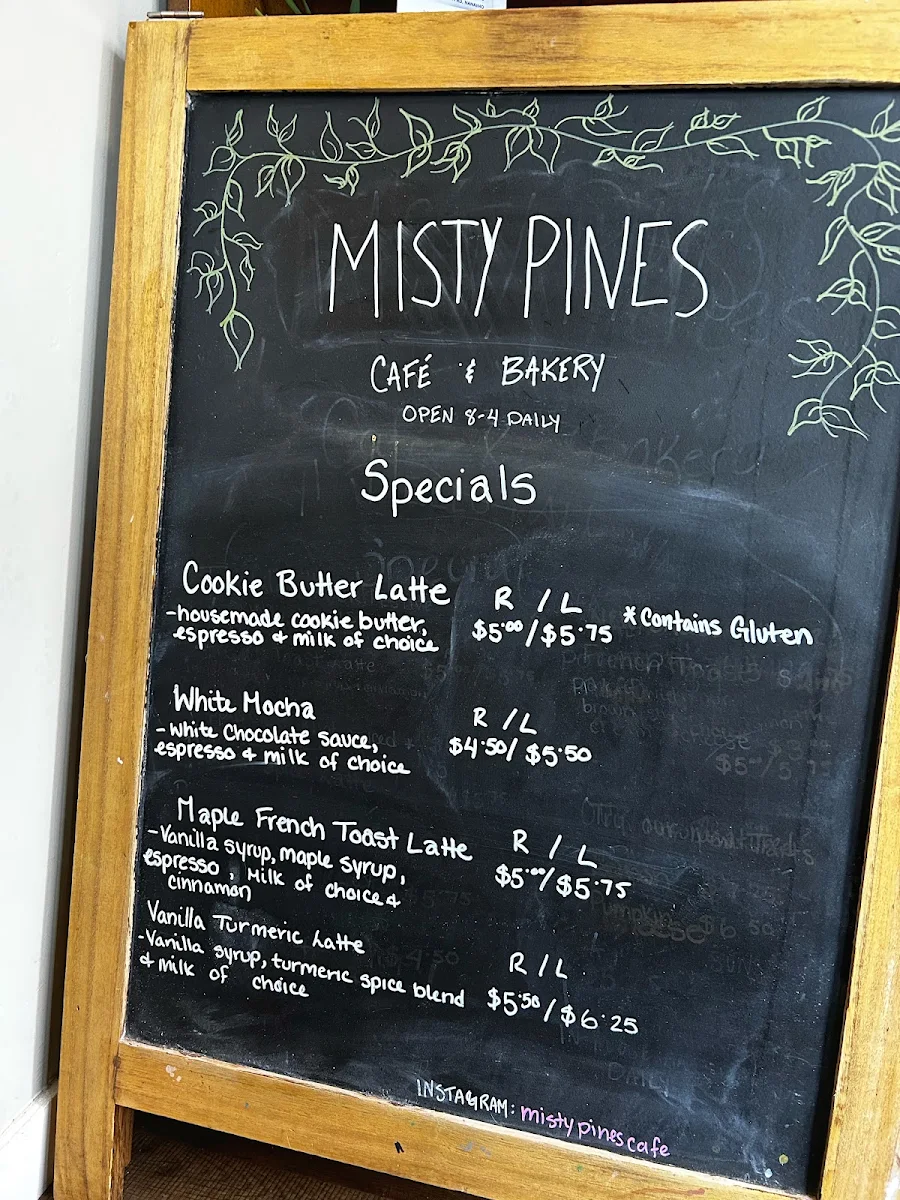 MISTY PINES
CAFÉ & BAKERY
OPEN 8-4 DAILY
Specials
Cookie Butter Latte R / L
-housemade cookie butter, $5.00/$5.75 *Contains Gluten
espresso & milk of choice
White Mocha R / L
- White Chocolate sauce, $4.50/ $5.50
espresso & milk of choice
Maple French Toast Latte R / L
-Vanilla syrup, maple syrup, $5.00/$5.75
espresso, Milk of choice &
cinnamon
Vanilla Turmeric Latte R / L
-Vanilla syrup, turmeric spice blend $5.50/$6.25
& milk of choice
INSTAGRAM: mistypinescafe